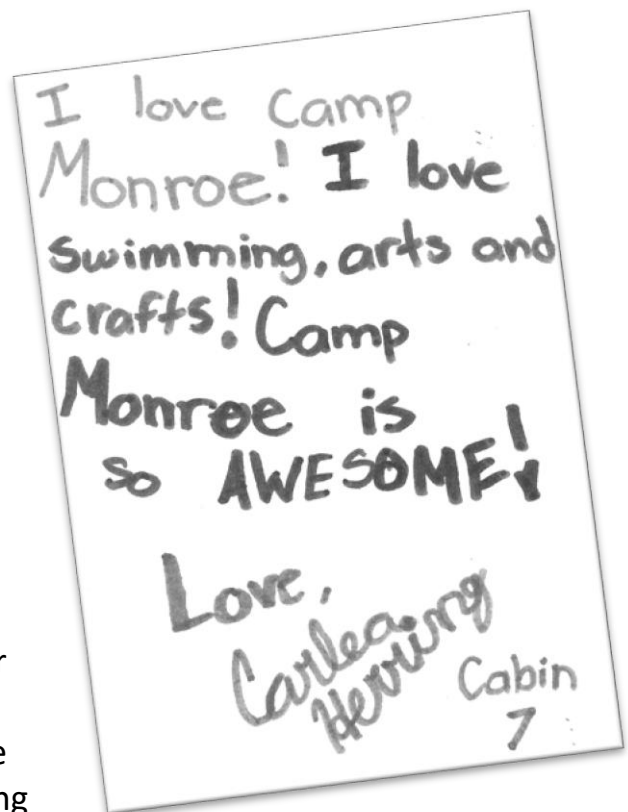 I love Camp
Monroe! I love
swimming, arts and
crafts! Camp
Monroe is
so AWESOME!
Love,
Carlea
Herring
Cabin
7
r
e
ng